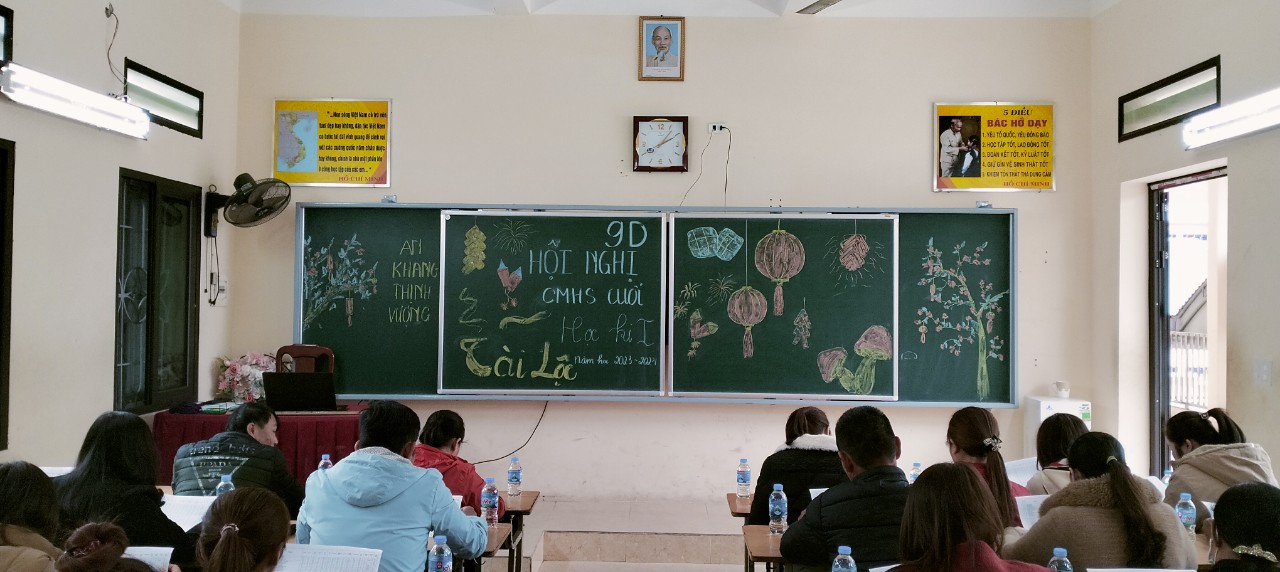 "...Non sông Việt Nam có trở nên
tươi đẹp hay không, dân tộc Việt Nam
có bước tới đài vinh quang để sánh vai
với các cường quốc năm châu được
hay không, chính là nhờ một phần lớn
ở công học tập của các em..."
HỒ CHÍ MINH
5 ĐIỀU
BÁC HỒ DẠY
1. YÊU TỔ QUỐC, YÊU ĐỒNG BÀO
2. HỌC TẬP TỐT, LAO ĐỘNG TỐT
3. ĐOÀN KẾT TỐT, KỶ LUẬT TỐT
4. GIỮ GÌN VỆ SINH THẬT TỐT
5. KHIÊM TỐN THẬT THÀ DŨNG CẢM
HỒ CHÍ MINH
AN
KHANG
THỊNH
VƯỢNG
9D
HỘI NGHỊ
CMHS CUỐI
Học kì I
Năm học 2023-2024
Tài Lộc